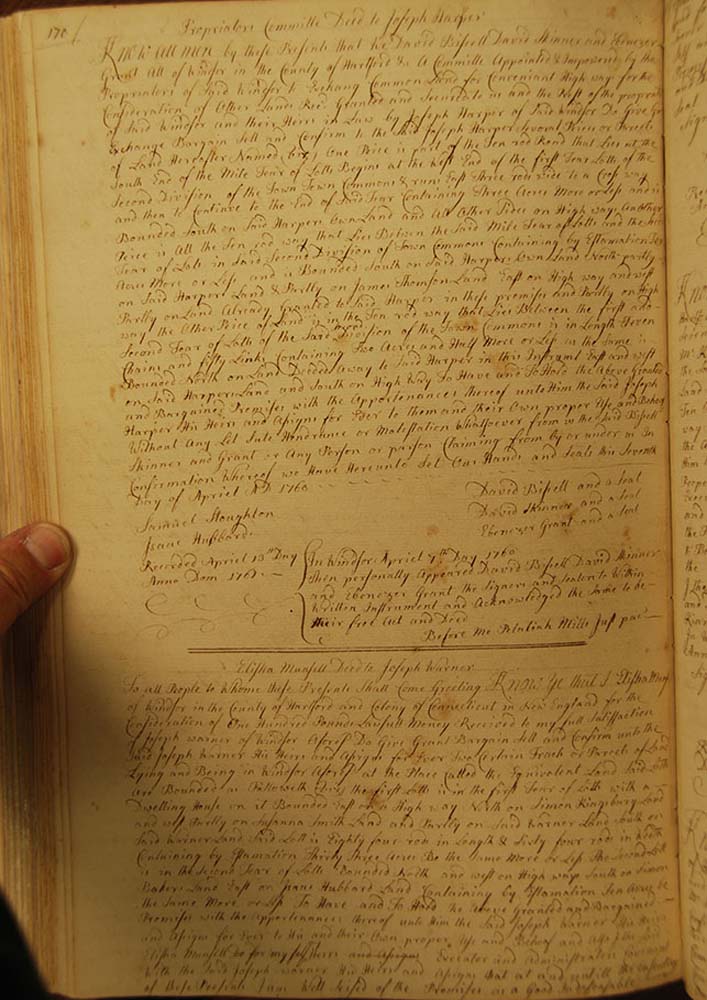 170
Propriators Committe Deed to Joseph Harper
Know All Men by these Presents that we David Bissell David Skinner and Ebenezer
Grant All of Windsor in the County of Hartford &c A Committe Appointed & Impowered by the
Propriators of Said Windsor to Exchang Common Land for Conveniant High ways for the
Consideration of Other Lands Recd Granted and Secured to us and the Rest of the propriators
of Said Windsor and their Heirs in Law by Joseph Harper of Said Windsor Do Give Grant
Exchange Bargain Sell and Confirm to the Said Joseph Harper Several Peices or Parcels
of Land Hereafter Named (viz) One Peice is part of the Ten rod Road that Lies at the
South End of the Mile Tear of Lotts Begins at the West End of the first Tear Lotts of the
Second Division of the Town Commons & runs East Three rods wide to a Cross way
and then to Contineue to the End of Said Tear Containing Three Acres More or Less and is
Bounded South on Said Harpers Own Land and All Other Sides on High ways Another
Peice is All the Ten rod way that Lies Betwen the Said Mile Tear of Lotts and the first
Tear of Lots in Said Second Division of Town Commons Containing by Estamation Ten
Acres More or Less and is Bounded South on Said Harpers Own Land North partly
on Said Harpers Land & Partly on James Thomson Land East on High way and west
Partly on Land Already Granted to Said Harper in these promises and Partly on High
way the Other Peice of Land is in the Ten rod way that Lies Between the first and
Second Tear of Lotts of the Said Division of the Town Commons is in Length Eleven
Chains and fifty Links Containing Two Acres and Half More or Less as the Same is
Bounded North on Land Deeded Away to Said Harper in this Instrument East and West
on Said Harpers Land and South on High Way To Have and To Hold the Above Granted
and Bargained Promises with the Appertenances thereof unto Him the Said Joseph
Harper His Heirs and Asigns for Ever to them and their Own proper Use and Behoof
Without Any Let Sute Hindrance or Molestation Whatsoever from us the Said Bissell
Skinner and Grant or Any Person or parson Claiming from by or under us In
Confirmation Whereof we Have Hereunto Set Our Hands and Seals this Seventh
Day of Apriel AD 1760
Samuel Stoughton
Isaac Hubbard
David Bissell and a Seal
David Skinner and a Seal
Ebenezer Grant and a Seal
Recorded Apriel 13th Day
Anno Dom 1761
In Windsor Apriel 7th Day 1760
Then personally Appeared David Bissell David Skinner
and Ebenezer Grant the Signers and Sealers to Within
Written Instrument and Acknowledged the Same to be
their free Act and Deed
Before Me Pelatiah Mills Just pac
Elisha Munsell Deed to Joseph Warner
To all People to Whome these Presents Shall Come Greeting Know Ye that I Elisha Munsell
of Windsor in the County of Hartford and Colony of Connecticut in New England for the
Consideration of One Hundred Pounds Lawfull Money Received to my full Satisfaction
of Joseph Warner of Windsor Afores Do Give Grant Bargain Sell and Confirm unto the
Said Joseph Warner His Heirs and Asigns for Ever Two Certain Trach or Parcels of Land
Lying and Being in Windsor Afores at the Place Called the Equivalent Land Said Lotts
Are Bounded as Followeth (viz) the first Lott is in the first Tear of Lotts with a
Dwelling House on it Bounded East on a High way North on Simon Kingsbury Land
and west Partly on Susanna Smith Land and Partly on Said Warner Land South on
Said Warner Land Said Lott is Eighty four rods in Length & Sixty four rods in Width
Containing by Estamation Thirty Three Acres Be the Same More or Less The Second Lott
is in the Second Tear of Lotts Bounded North and west on High ways South on Simon
Bakers Land East on Isaac Hubbard Land Containing by Estamation Ten Acres be
the Same More or Less To Have and To Hold the Above Granted and Bargained
Promises with the Appertenances thereof unto Him the Said Joseph Warner His Heirs
and Asigns for Ever to His and their Own proper Use and Behoof and Also I the Said
Elisha Munsell Do for my Self Heirs and Asigns Executor and Administrators Covenant
With the Said Joseph Warner His Heirs and Asigns that at and untill the Ensealing
of these Presents I am Well Seised of the Promises as a Good Indefeasable